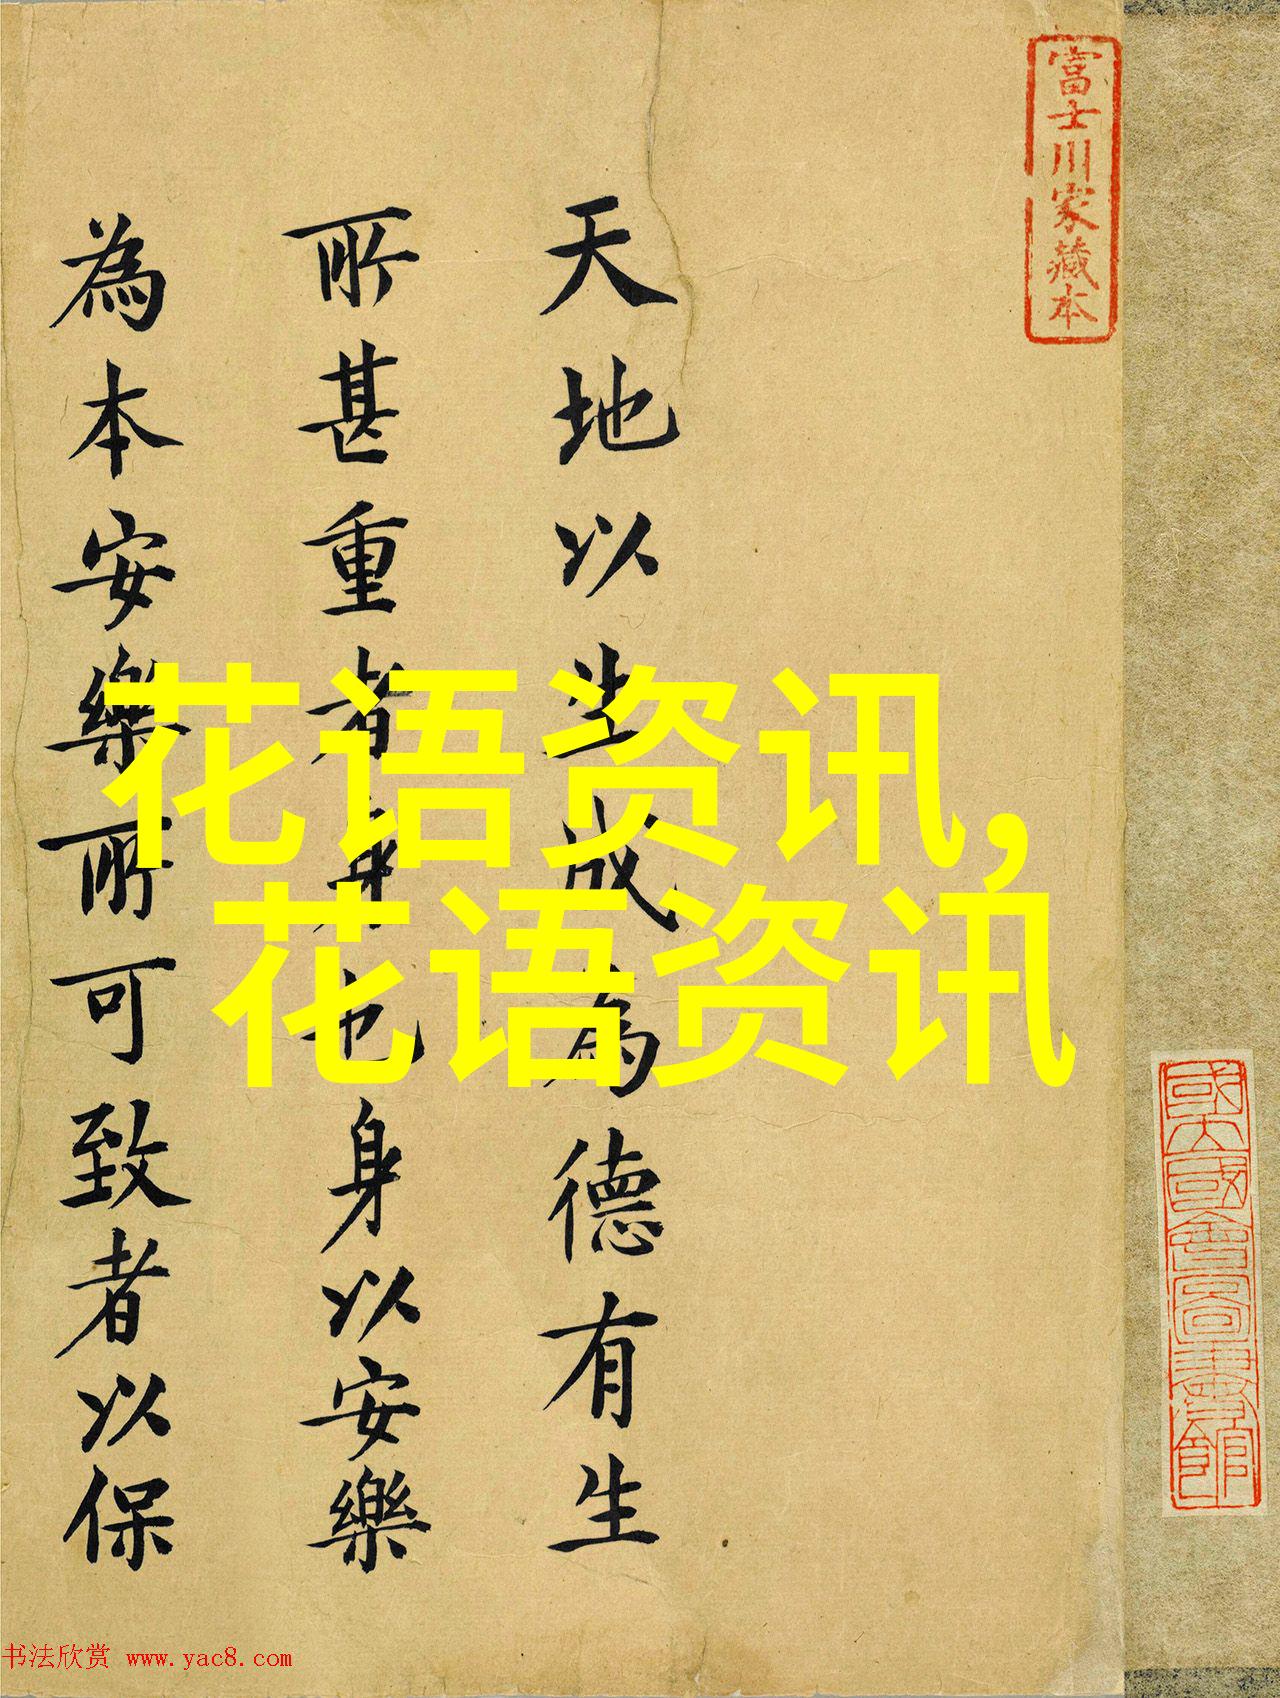 富士川家藏本
天地以生成為德有生
所甚重者身也身以安樂
為本安樂所可致者以保
花语资讯,
花语资讯
國立國會圖書館
书法欣赏 www.yac8.com